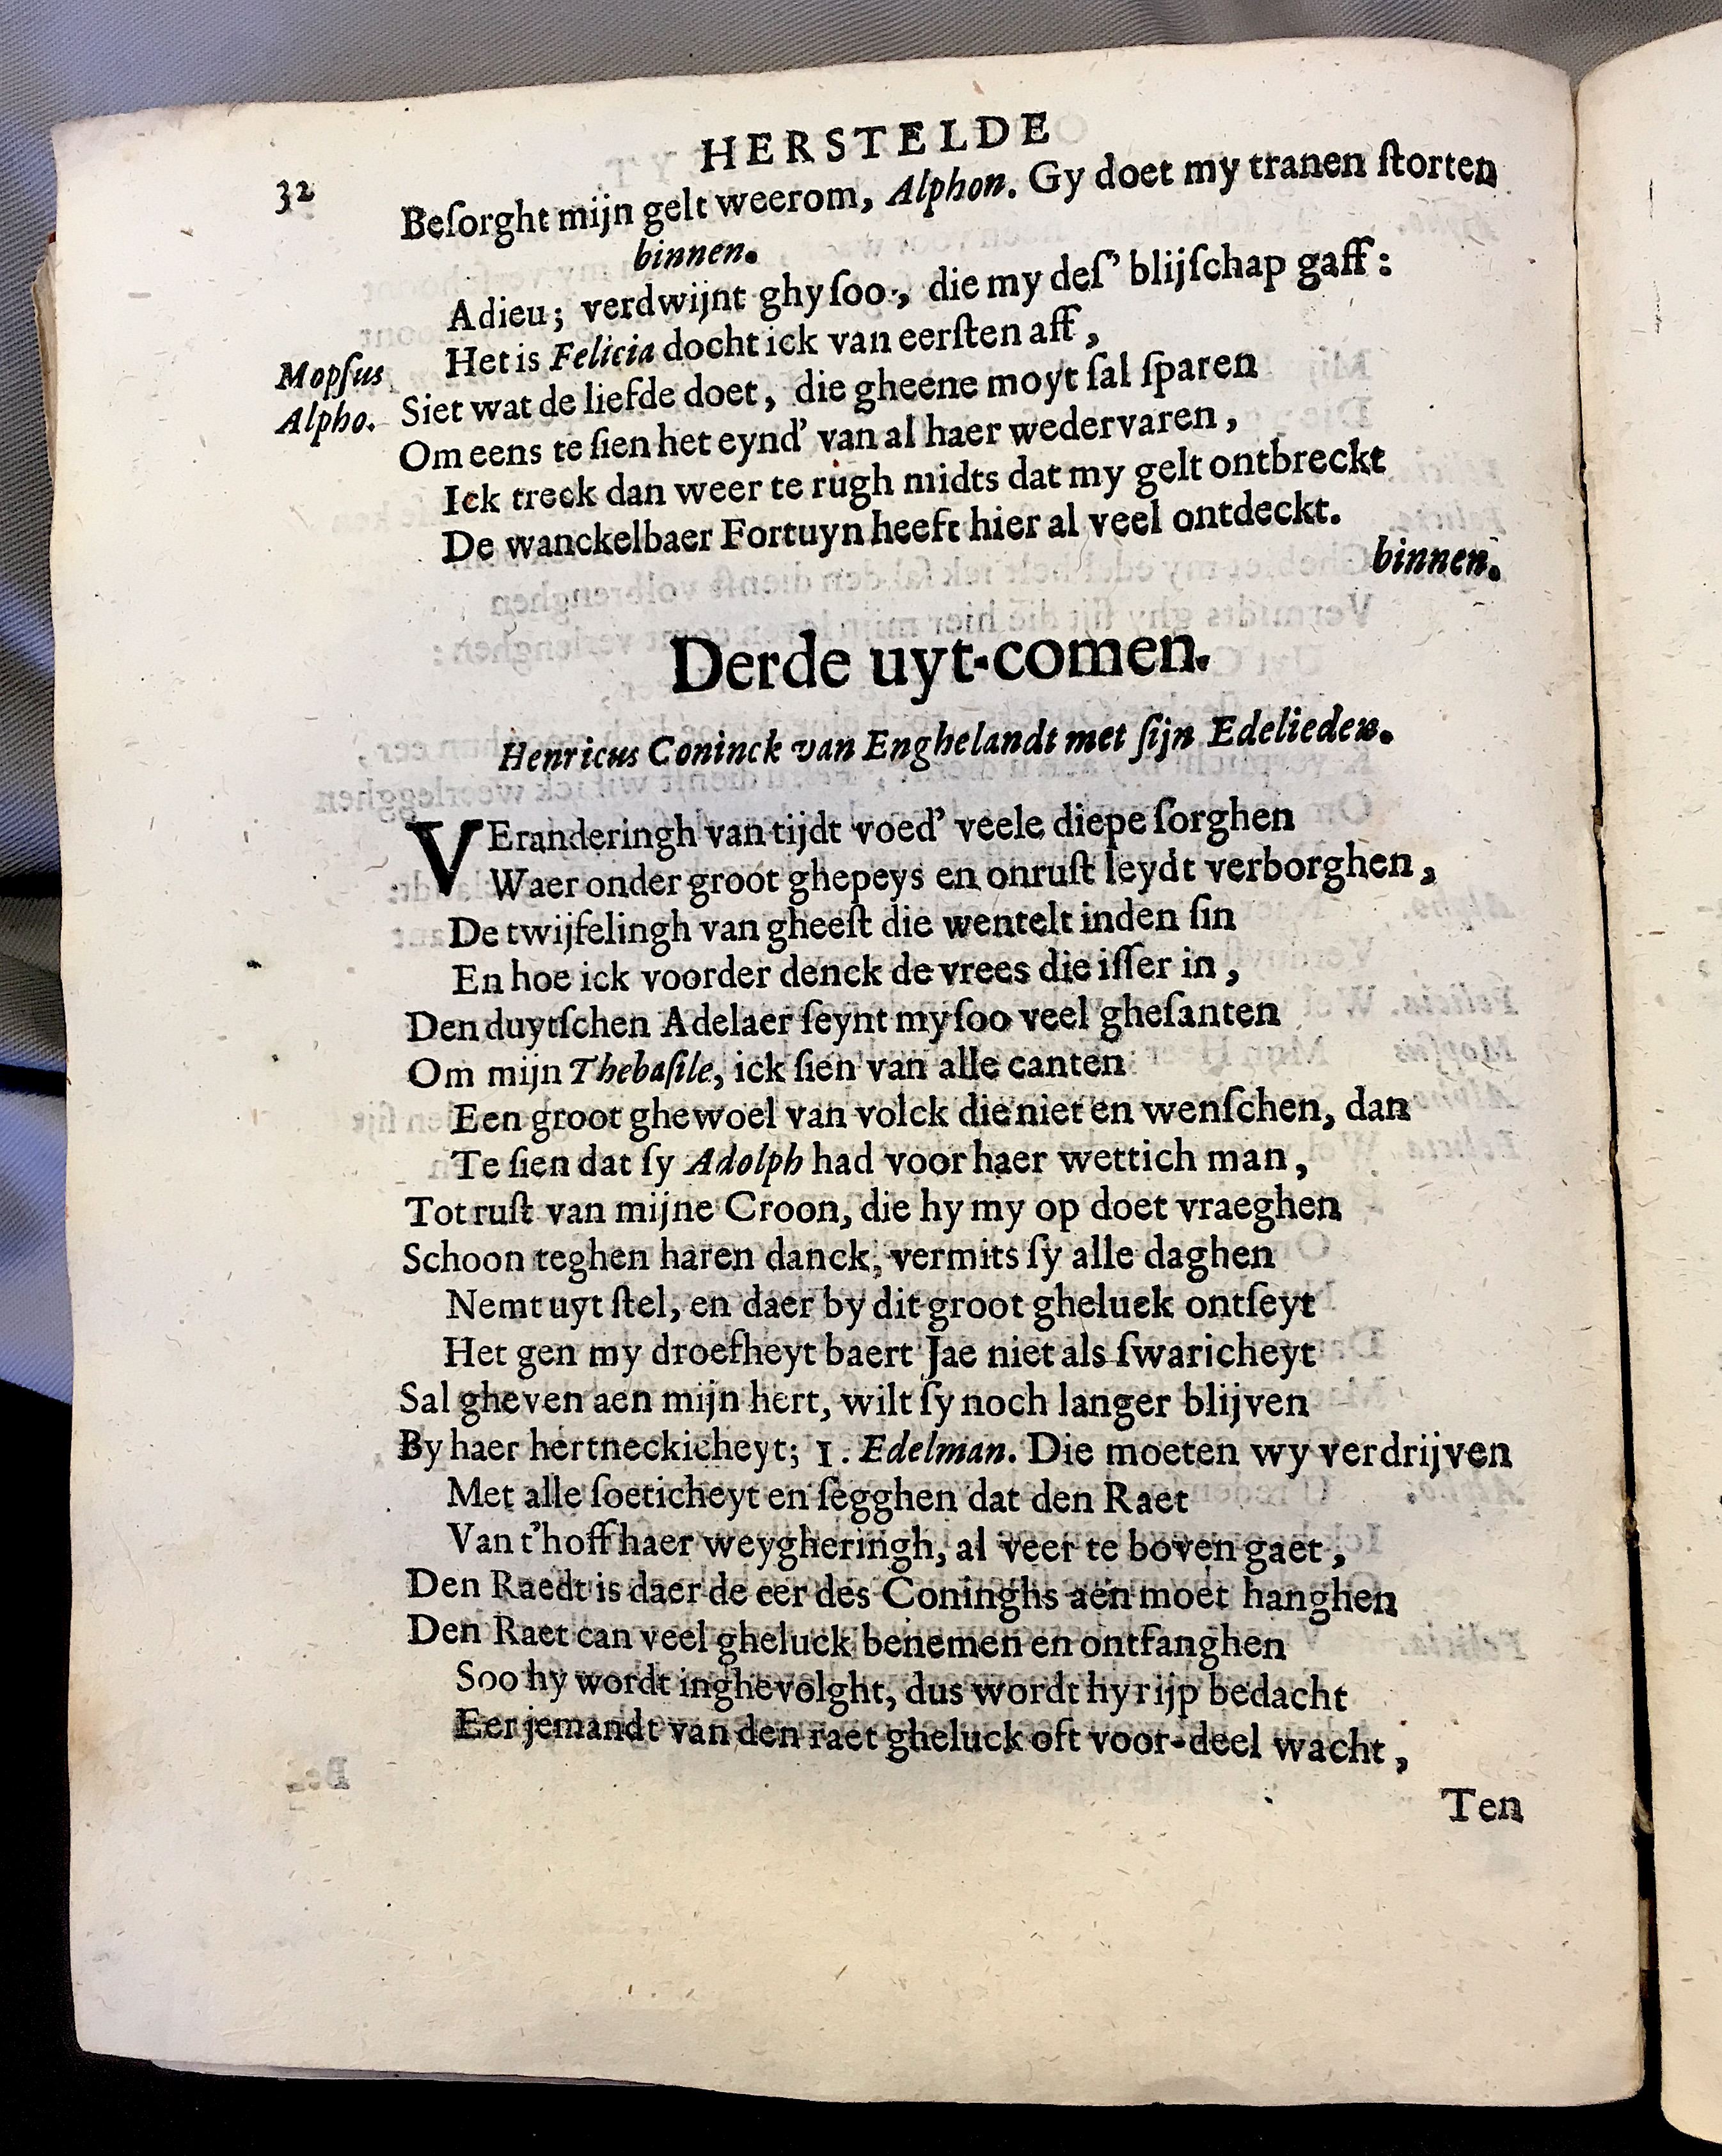 HERSTELDE
32
Beſorght mijn gelt weerom, Alphon. Gy doet my tranen ſtorten
binnen.
Adieu; verdwijnt ghy ſoo, die my deſ' blijſchap gaff:
Het is Felicia docht ick van eerſten aff,
Mopſus Siet wat de liefde doet, die gheene moyt ſal ſparen
Alpho. Om eens te ſien het eynd' van al haer wedervaren,
Ick treck dan weer te rugh midts dat my gelt ontbreckt
De wanckelbaer Fortuyn heeft hier al veel ontdeckt.
binnen.
Derde uyt-comen.
Henricus Coninck van Enghelandt met ſijn Edelieden.
VEranderingh van tijdt voed' veele diepe ſorghen
Waer onder groot ghepeys en onruſt leydt verborghen,
De twijfelingh van gheeſt die wentelt inden ſin
En hoe ick voorder denck de vrees die iſſer in,
Den duytſchen Adelaer ſeynt my ſoo veel gheſanten
Om mijn Thebaſile, ick ſien van alle canten
Een groot ghewoel van volck die niet en wenſchen, dan
Te ſien dat ſy Adolph had voor haer wettich man,
Tot ruſt van mijne Croon, die hy my op doet vraeghen
Schoon teghen haren danck, vermits ſy alle daghen
Nemt uyt ſtel, en daer by dit groot gheluck ontſeyt
Het gen my droefheyt baert Jae niet als ſwaricheyt
Sal gheven aen mijn hert, wilt ſy noch langer blijven
By haer hertneckicheyt; 1. Edelman. Die moeten wy verdrijven
Met alle ſoeticheyt en ſegghen dat den Raet
Van t'hoff haer weygheringh, al veer te boven gaet,
Den Raedt is daer de eer des Coninghs aen moet hanghen
Den Raet can veel gheluck benemen en ontfanghen
Soo hy wordt inghevolght, dus wordt hy rijp bedacht
Eer jemandt van den raet gheluck oft voor-deel wacht,
Ten